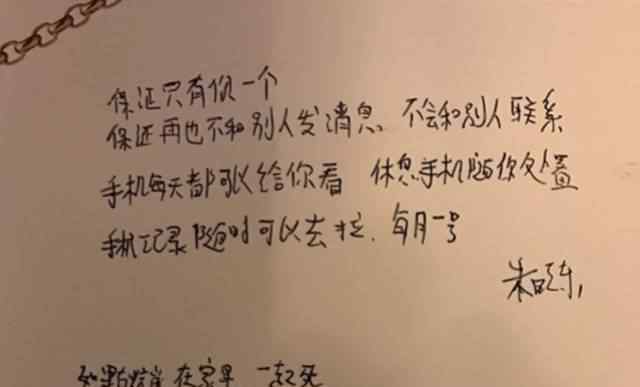 保证只有你一个
保证再也不和别人发消息 不会和别人联系
手机每天都可以给你看 休息手机随你处置
手机记录随时可以去拉、每月一号
朱晓东,
在家里 一起死